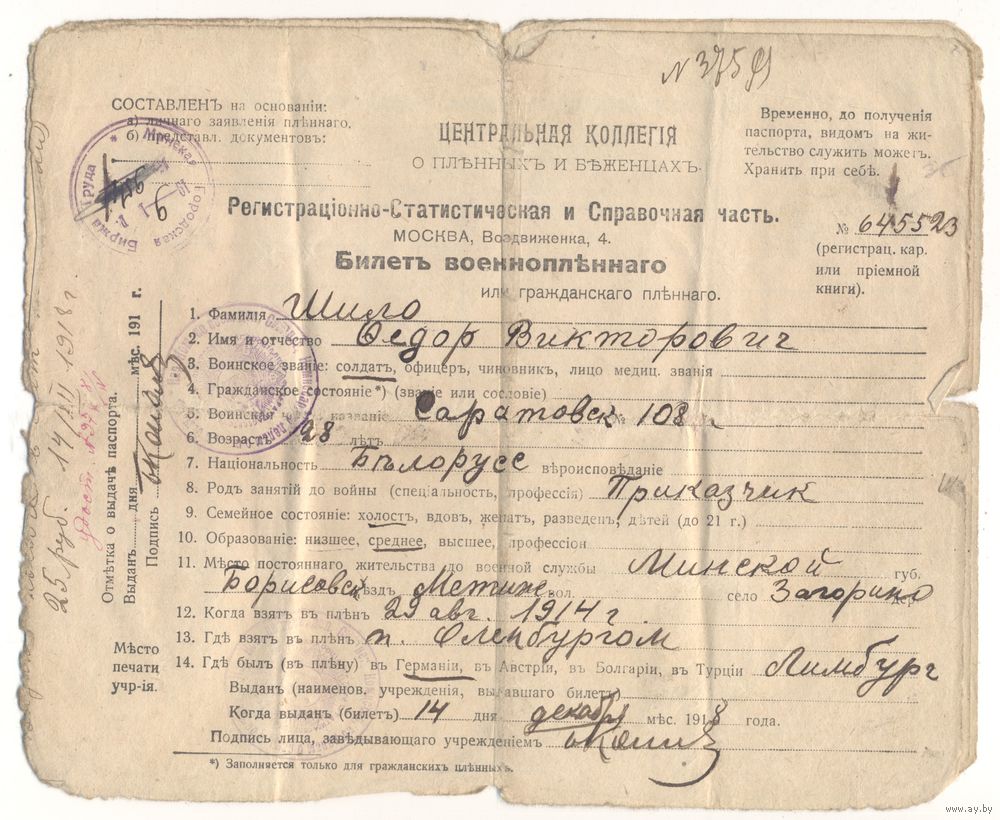 № 375
СОСТАВЛЕНЪ на основаніи:
а) личнаго заявленія плѣннаго.
б) представл. документовъ:
ЦЕНТРАЛЬНАЯ КОЛЛЕГІЯ
О ПЛѢННЫХЪ И БѢЖЕНЦАХЪ.
Временно, до полученія
паспорта, видомъ на жи-
тельство служить можетъ.
Хранить при себѣ.
Минская Городская Биржа Труда
Регистраціонно-Статистическая и Справочная часть.
МОСКВА, Воздвиженка, 4.
№ 645523
(регистрац. кар.
или пріемной
книги).
Билетъ военноплѣннаго
или гражданскаго плѣннаго.
1. Фамилія Шило
2. Имя и отчество Ѳедор Викторович
3. Воинское званіе: солдатъ, офицеръ, чиновникъ, лицо медиц. званія
4. Гражданское состояніе*) (званіе или сословіе)
5. Воинская названіе Саратовск № 108
6. Возрастъ 28 лѣтъ
7. Національность Бѣлорусс вѣроисповѣданіе
8. Родъ занятій до войны (спеціальность, профессія) Приказчик
9. Семейное состояніе: холостъ, вдовъ, женатъ, разведенъ, дѣтей (до 21 г.)
10. Образованіе: низшее, среднее, высшее, профессіон
11. Мѣсто постояннаго жительства до военной службы Минской губ.
Борисовск уѣздъ Метиж вол. село Загорино дер.
12. Когда взятъ в плѣнъ 29 авг. 1914 г
13. Гдѣ взятъ в плѣнъ п. Оленбургом
14. Гдѣ былъ (въ плѣну) въ Германіи, въ Австріи, въ Болгаріи, въ Турціи Лимбург
Выданъ (наименов. учрежденія, выдавшаго билетъ)
Когда выданъ (билетъ) 14 дня декабря мѣс. 1918 года.
Подпись лица, завѣдывающаго учрежденіемъ
*) Заполняется только для гражданскихъ плѣнныхъ.
Отмѣтка о выдачѣ паспорта.
Выданъ дня мѣс. 191 г.
Подпись
Мѣсто
печати
учр-ія.
25 руб. 14/XII 1918 г.
www.ay.by